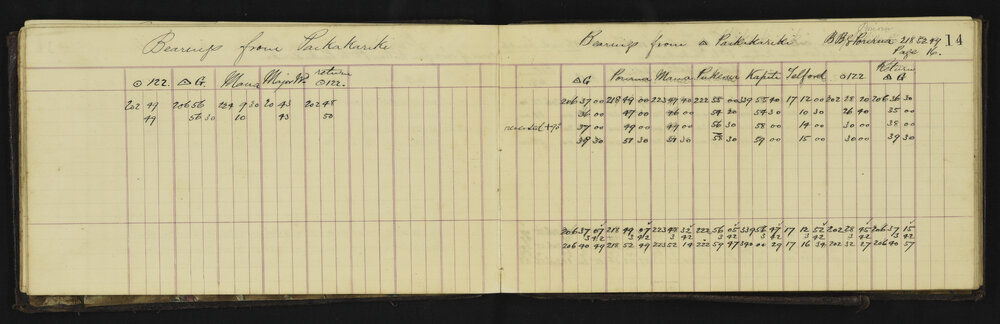 Bearings from Paikakariki
⊙ 122. △ G. Mana Major Jn return ⊙ 122.
202 49 206 56 224 9 30 20 43 202 48
49 56 30 10 43 50
Bearings from △ Paikakariki
B B & Porirua 218 52 49
Page 16.
14
△ G Porirua Mana Pukerua Kapiti Telford ⊙ 122 Return △ G
206 37 00 218 49 00 223 47 40 222 55 00 339 55 40 17 12 00 202 28 20 206 36 30
36 00 47 00 46 00 54 20 54 30 10 30 26 40 35 00
37 00 49 00 49 00 56 30 58 00 14 00 30 00 38 00
39 30 51 30 51 30 58 30 59 00 15 00 30 00 39 30
206 37 07 218 49 07 223 48 32 222 56 05 339 56 47 17 12 52 202 28 45 206 37 15
3 42 3 42 3 42 3 42 3 42 3 42 3 42 3 42
206 40 49 218 52 49 223 52 14 222 59 47 340 00 29 17 16 34 202 32 27 206 40 57